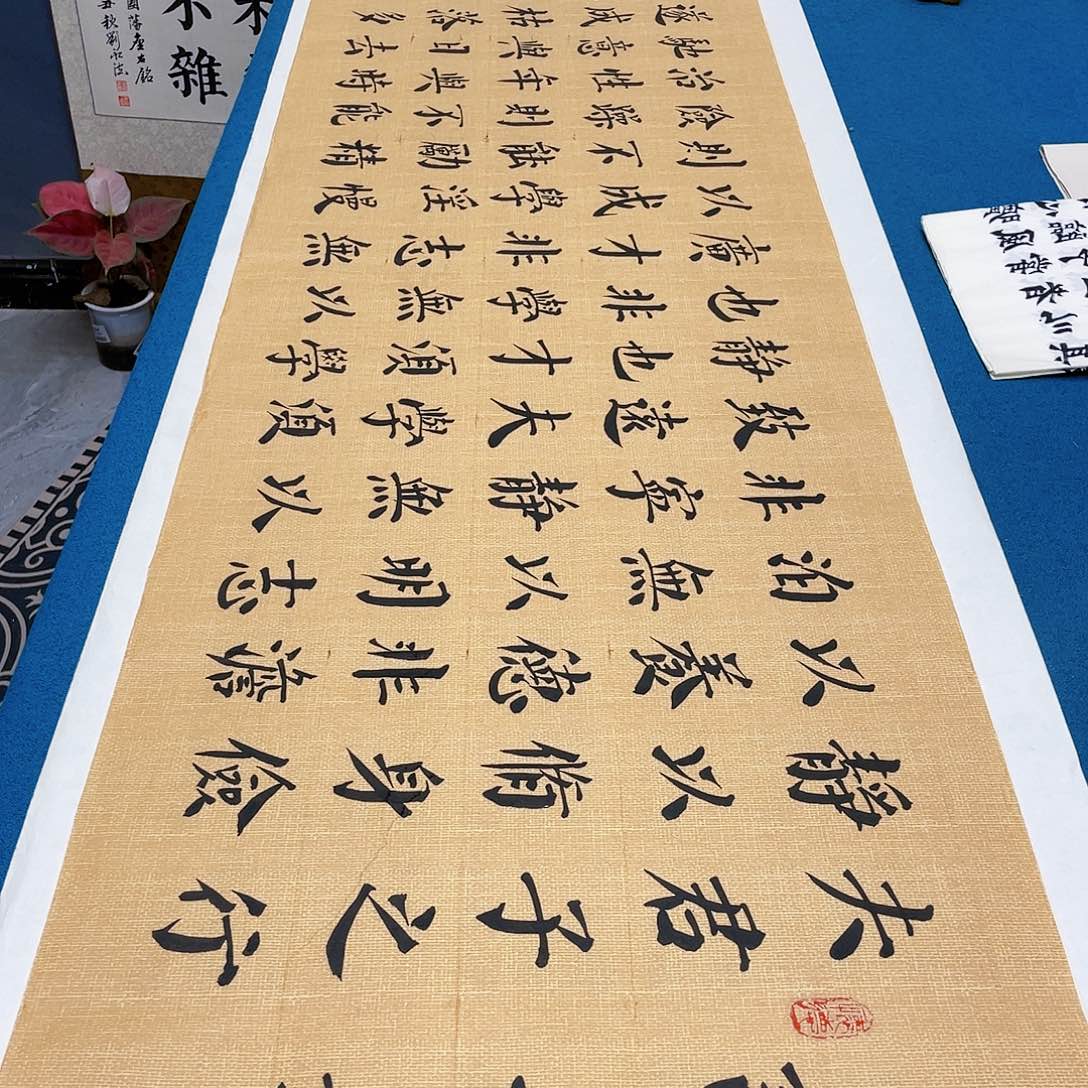 夫君子之行
靜以脩身儉
以養德非澹
泊無以明志
非寧靜無以
致遠夫學須
靜也才須學
也非學無以
廣才非志無
以成學淫慢
則不能勵精
險躁則不能
治性年與時
馳意與日去
遂成枯落多
不雜
國藩座右銘